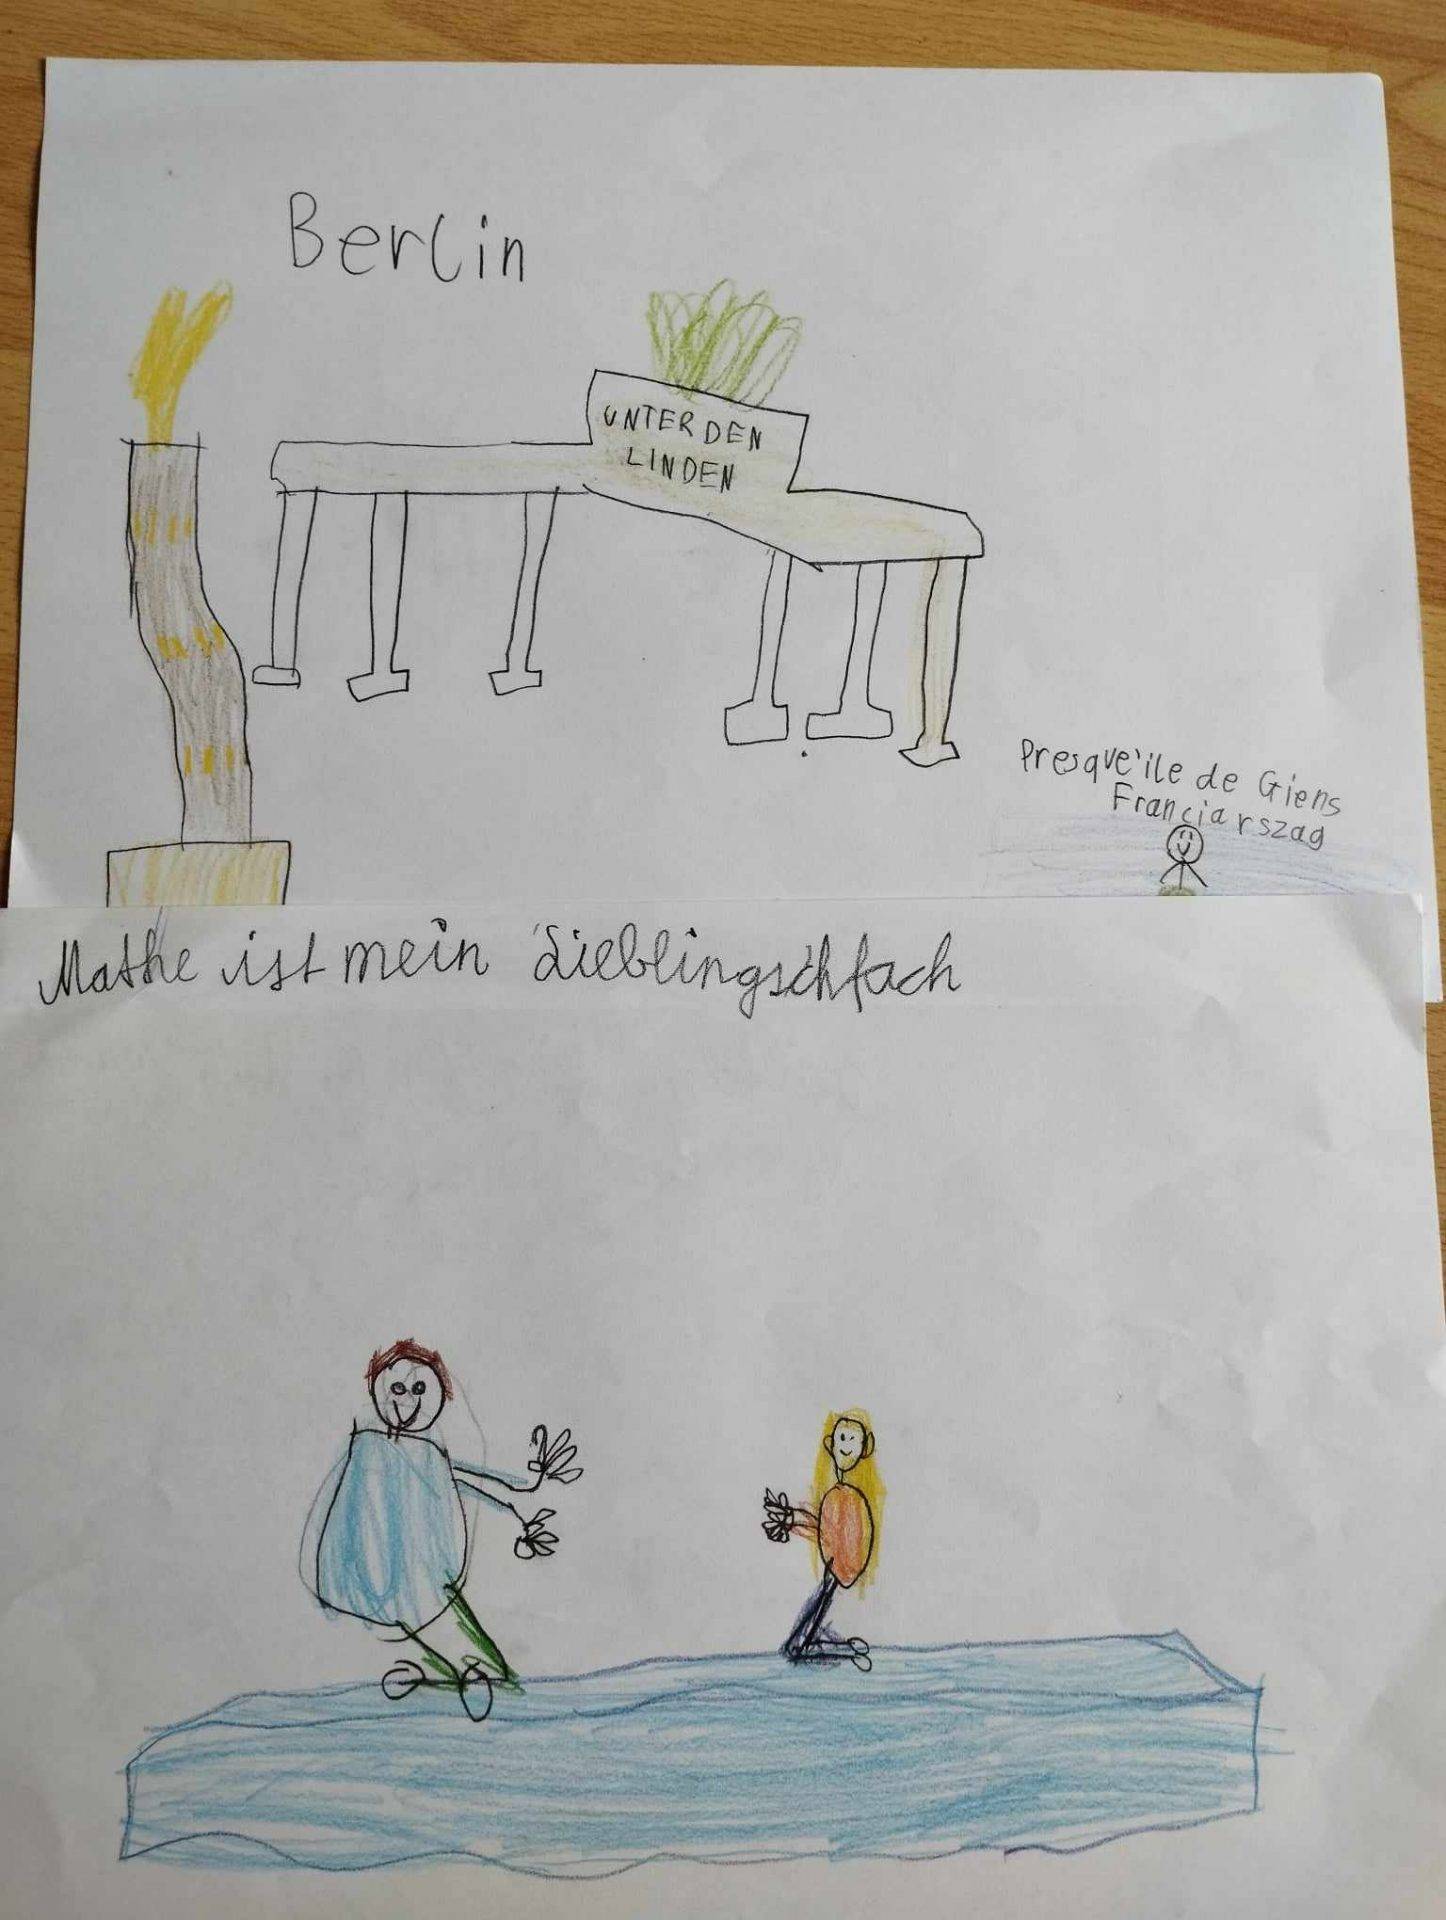 Berlin
UNTER DEN
LINDEN
Presque'ile de Giens
Franciarszag
Mathe ist mein Lieblingschfach